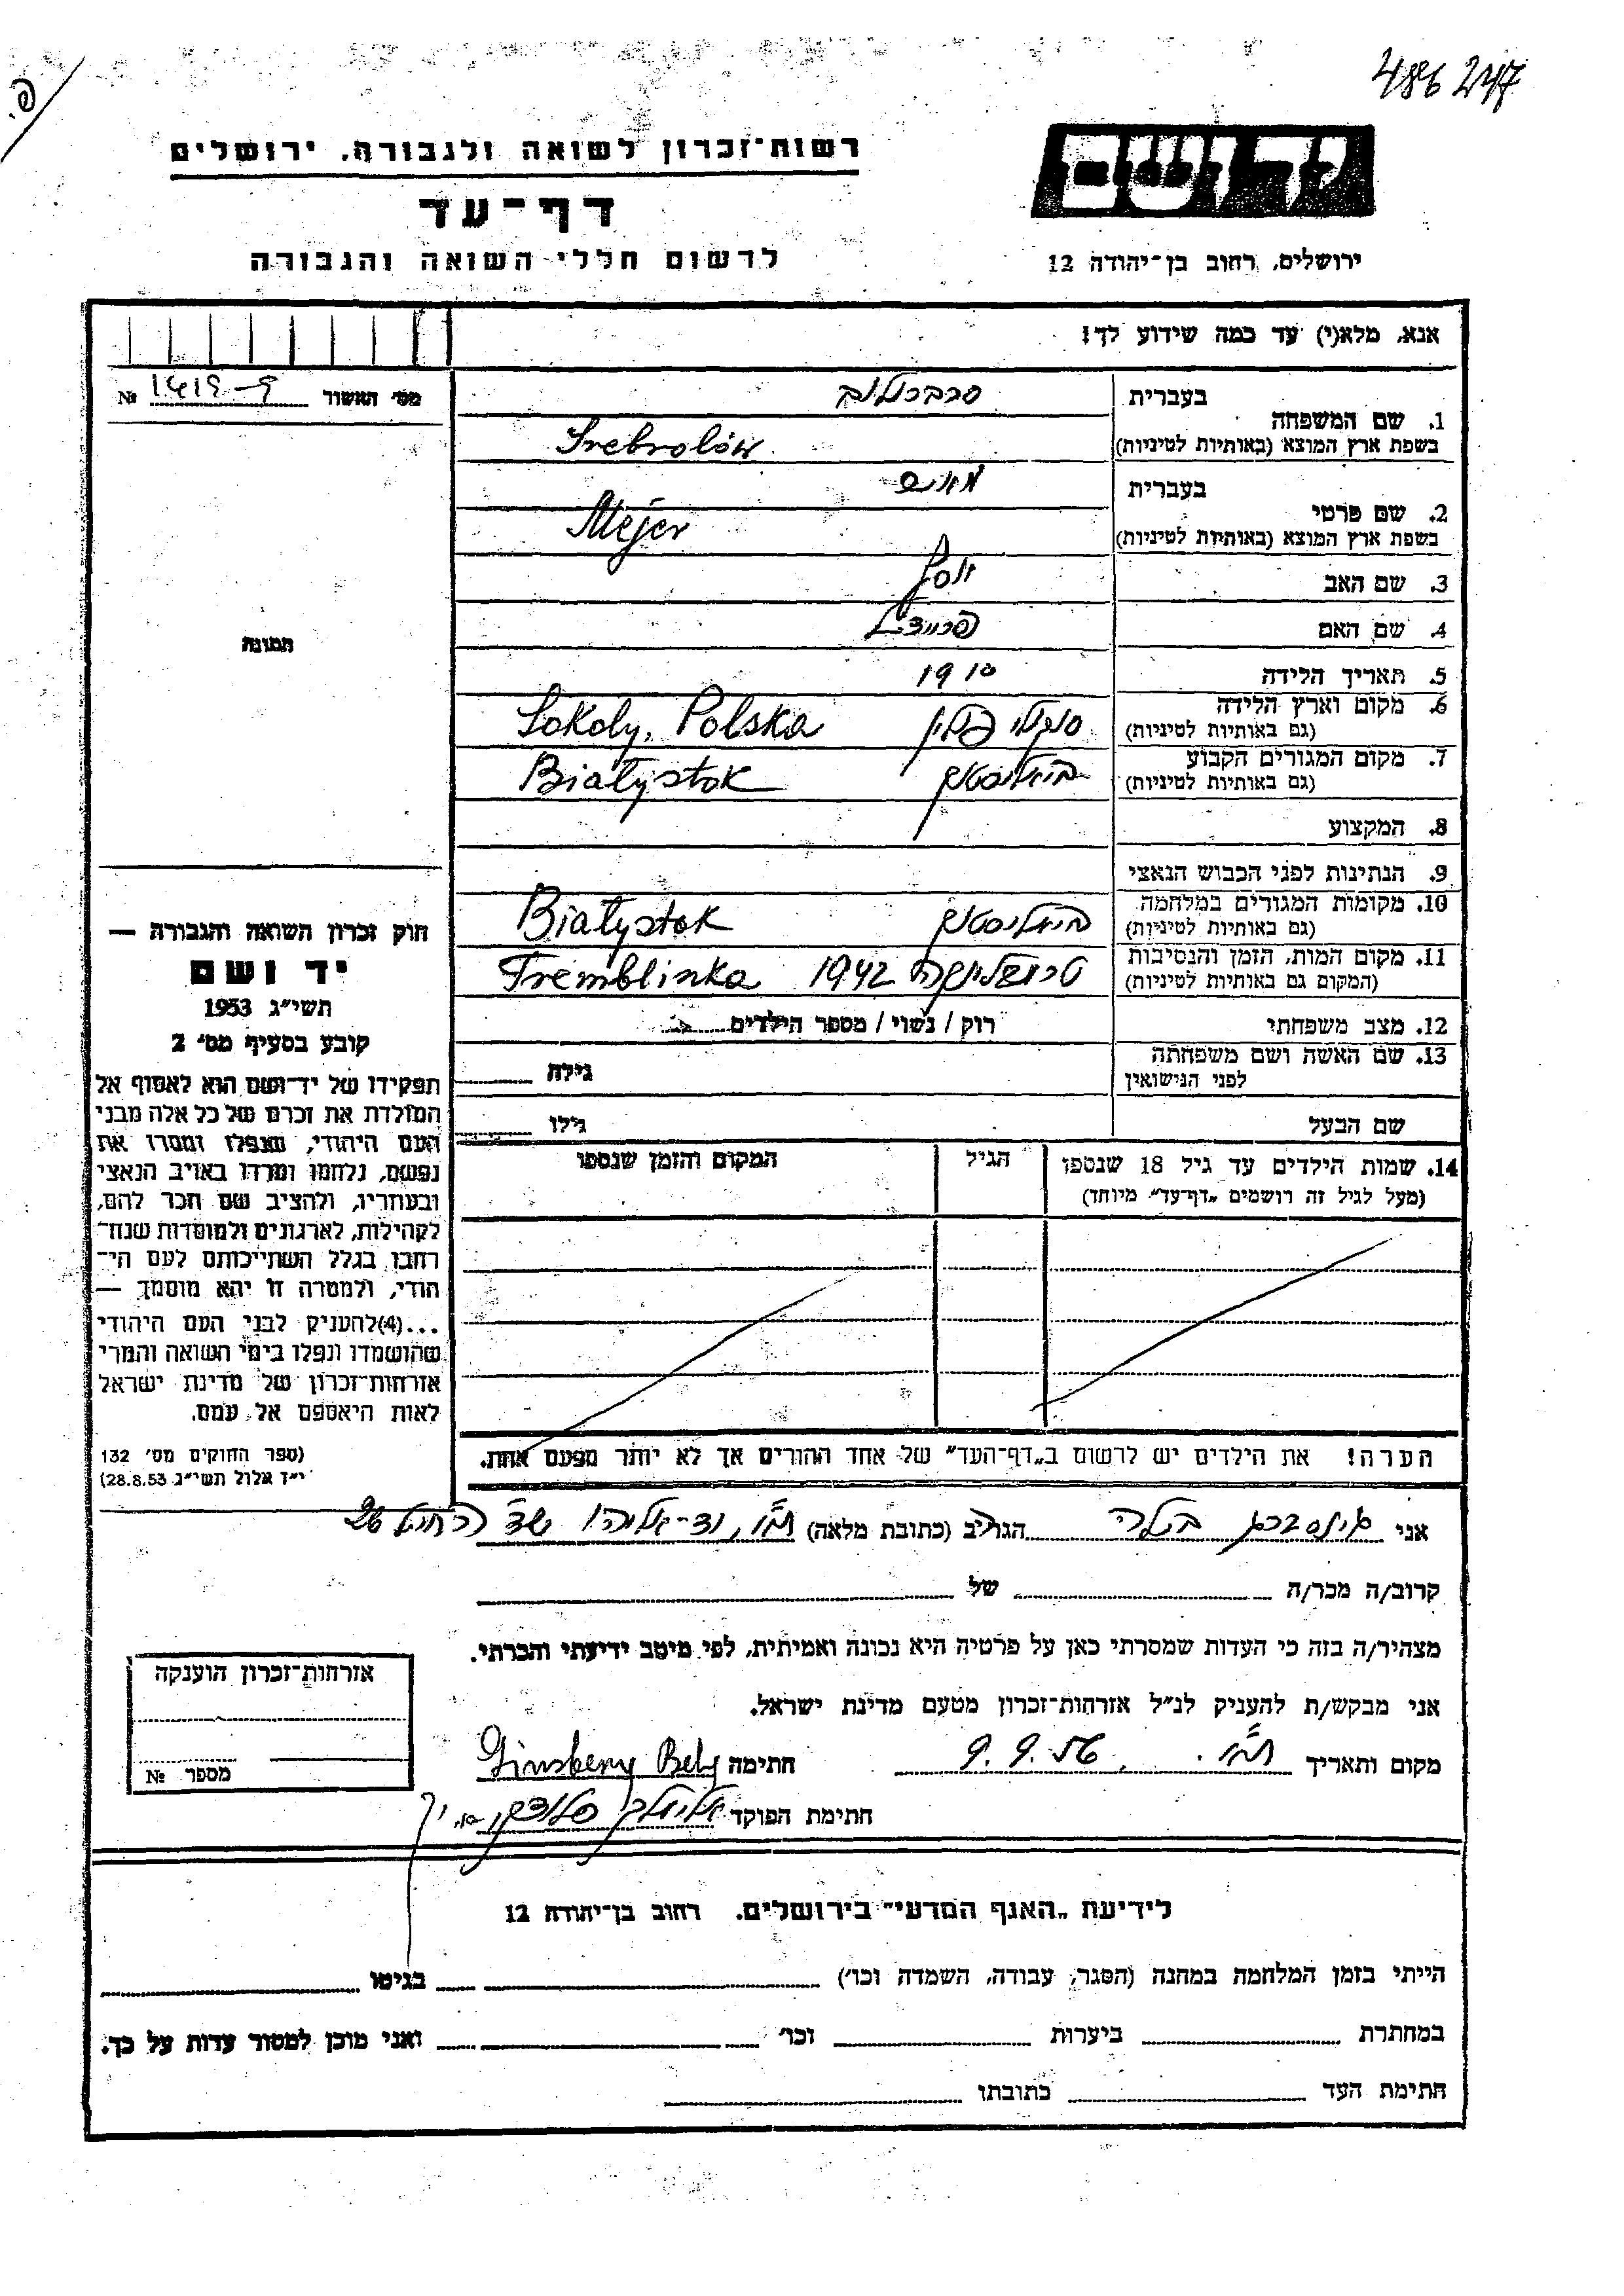 486 247
רשות־זכרון לשואה ולגבורה, ירושלים
דף־עד
לרשום חללי השואה והגבורה
ירושלים, רחוב בן־יהודה 12
אנא, מלא(י) עד כמה שידוע לך!
מס׳ האשור №
1. שם המשפחה
בעברית
בשפת ארץ המוצא (באותיות לטיניות)
Srebrolów
2. שם פרטי
בעברית
בשפת ארץ המוצא (באותיות לטיניות)
Mejer
3. שם האב
יוסף
4. שם האם
תמונה
5. תאריך הלידה 1910
6. מקום וארץ הלידה
(גם באותיות לטיניות)
סוקולי פולין Sokoly, Polska
7. מקום המגורים הקבוע
(גם באותיות לטיניות)
ביאליסטוק Białystok
8. המקצוע
9. הנתינות לפני הכבוש הנאצי
10. מקומות המגורים במלחמה
(גם באותיות לטיניות)
ביאליסטוק Białystok
11. מקום המות, הזמן והנסיבות
(המקום גם באותיות לטיניות)
טרמבלינקה 1942 Tremblinka
12. מצב משפחתי רוק / נשוי / מספר הילדים
13. שם האשה ושם משפחתה
לפני הנישואין
גילה
שם הבעל גילו
14. שמות הילדים עד גיל 18 שנספו
(מעל לגיל זה רושמים „דף־עד״ מיוחד)
הגיל
המקום והזמן שנספו
הערה! את הילדים יש לרשום ב„דף־העד״ של אחד ההורים אך לא יותר מפעם אחת.
חוק זכרון השואה והגבורה —
יד ושם
תשי״ג 1953
קובע בסעיף מס׳ 2
תפקידו של יד־ושם הוא לאסוף אל
המולדת את זכרם של כל אלה מבני
העם היהודי, שנפלו ומסרו את
נפשם, נלחמו ומרדו באויב הנאצי
ובעוזריו, ולהציב שם וזכר להם,
לקהילות, לארגונים ולמוסדות שנח־
רחבו בגלל השתייכותם לעם הי־
הודי, ולמטרה זו יהא מוסמך —
...(4)להעניק לבני העם היהודי
שהושמדו ונפלו בימי השואה והמרי
אזרחות־זכרון של מדינת ישראל
לאות היאספם אל עמם.
(ספר החוקים מס׳ 132
י״ז אלול תשי״ג 28.8.53)
אני גינסברג בילה הגר/ב (כתובת מלאה)
קרוב/ה מכר/ה של
מצהיר/ה בזה כי העדות שמסרתי כאן על פרטיה היא נכונה ואמיתית, לפי מיטב ידיעתי והכרתי.
אני מבקש/ת להעניק לנ״ל אזרחות־זכרון מטעם מדינת ישראל.
מקום ותאריך ת״א 9.9.56 חתימה Ginsberg Bela
חתימת הפוקד
אזרחות־זכרון הוענקה
מספר №
לידיעת „האגף המדעי״ בירושלים. רחוב בן־יהודה 12
הייתי בזמן המלחמה במחנה (הסגר, עבודה, השמדה וכו׳) בגיטו
במחתרת ביערות וכו׳ ואני מוכן למסור עדות על כך.
חתימת העד כתובתו